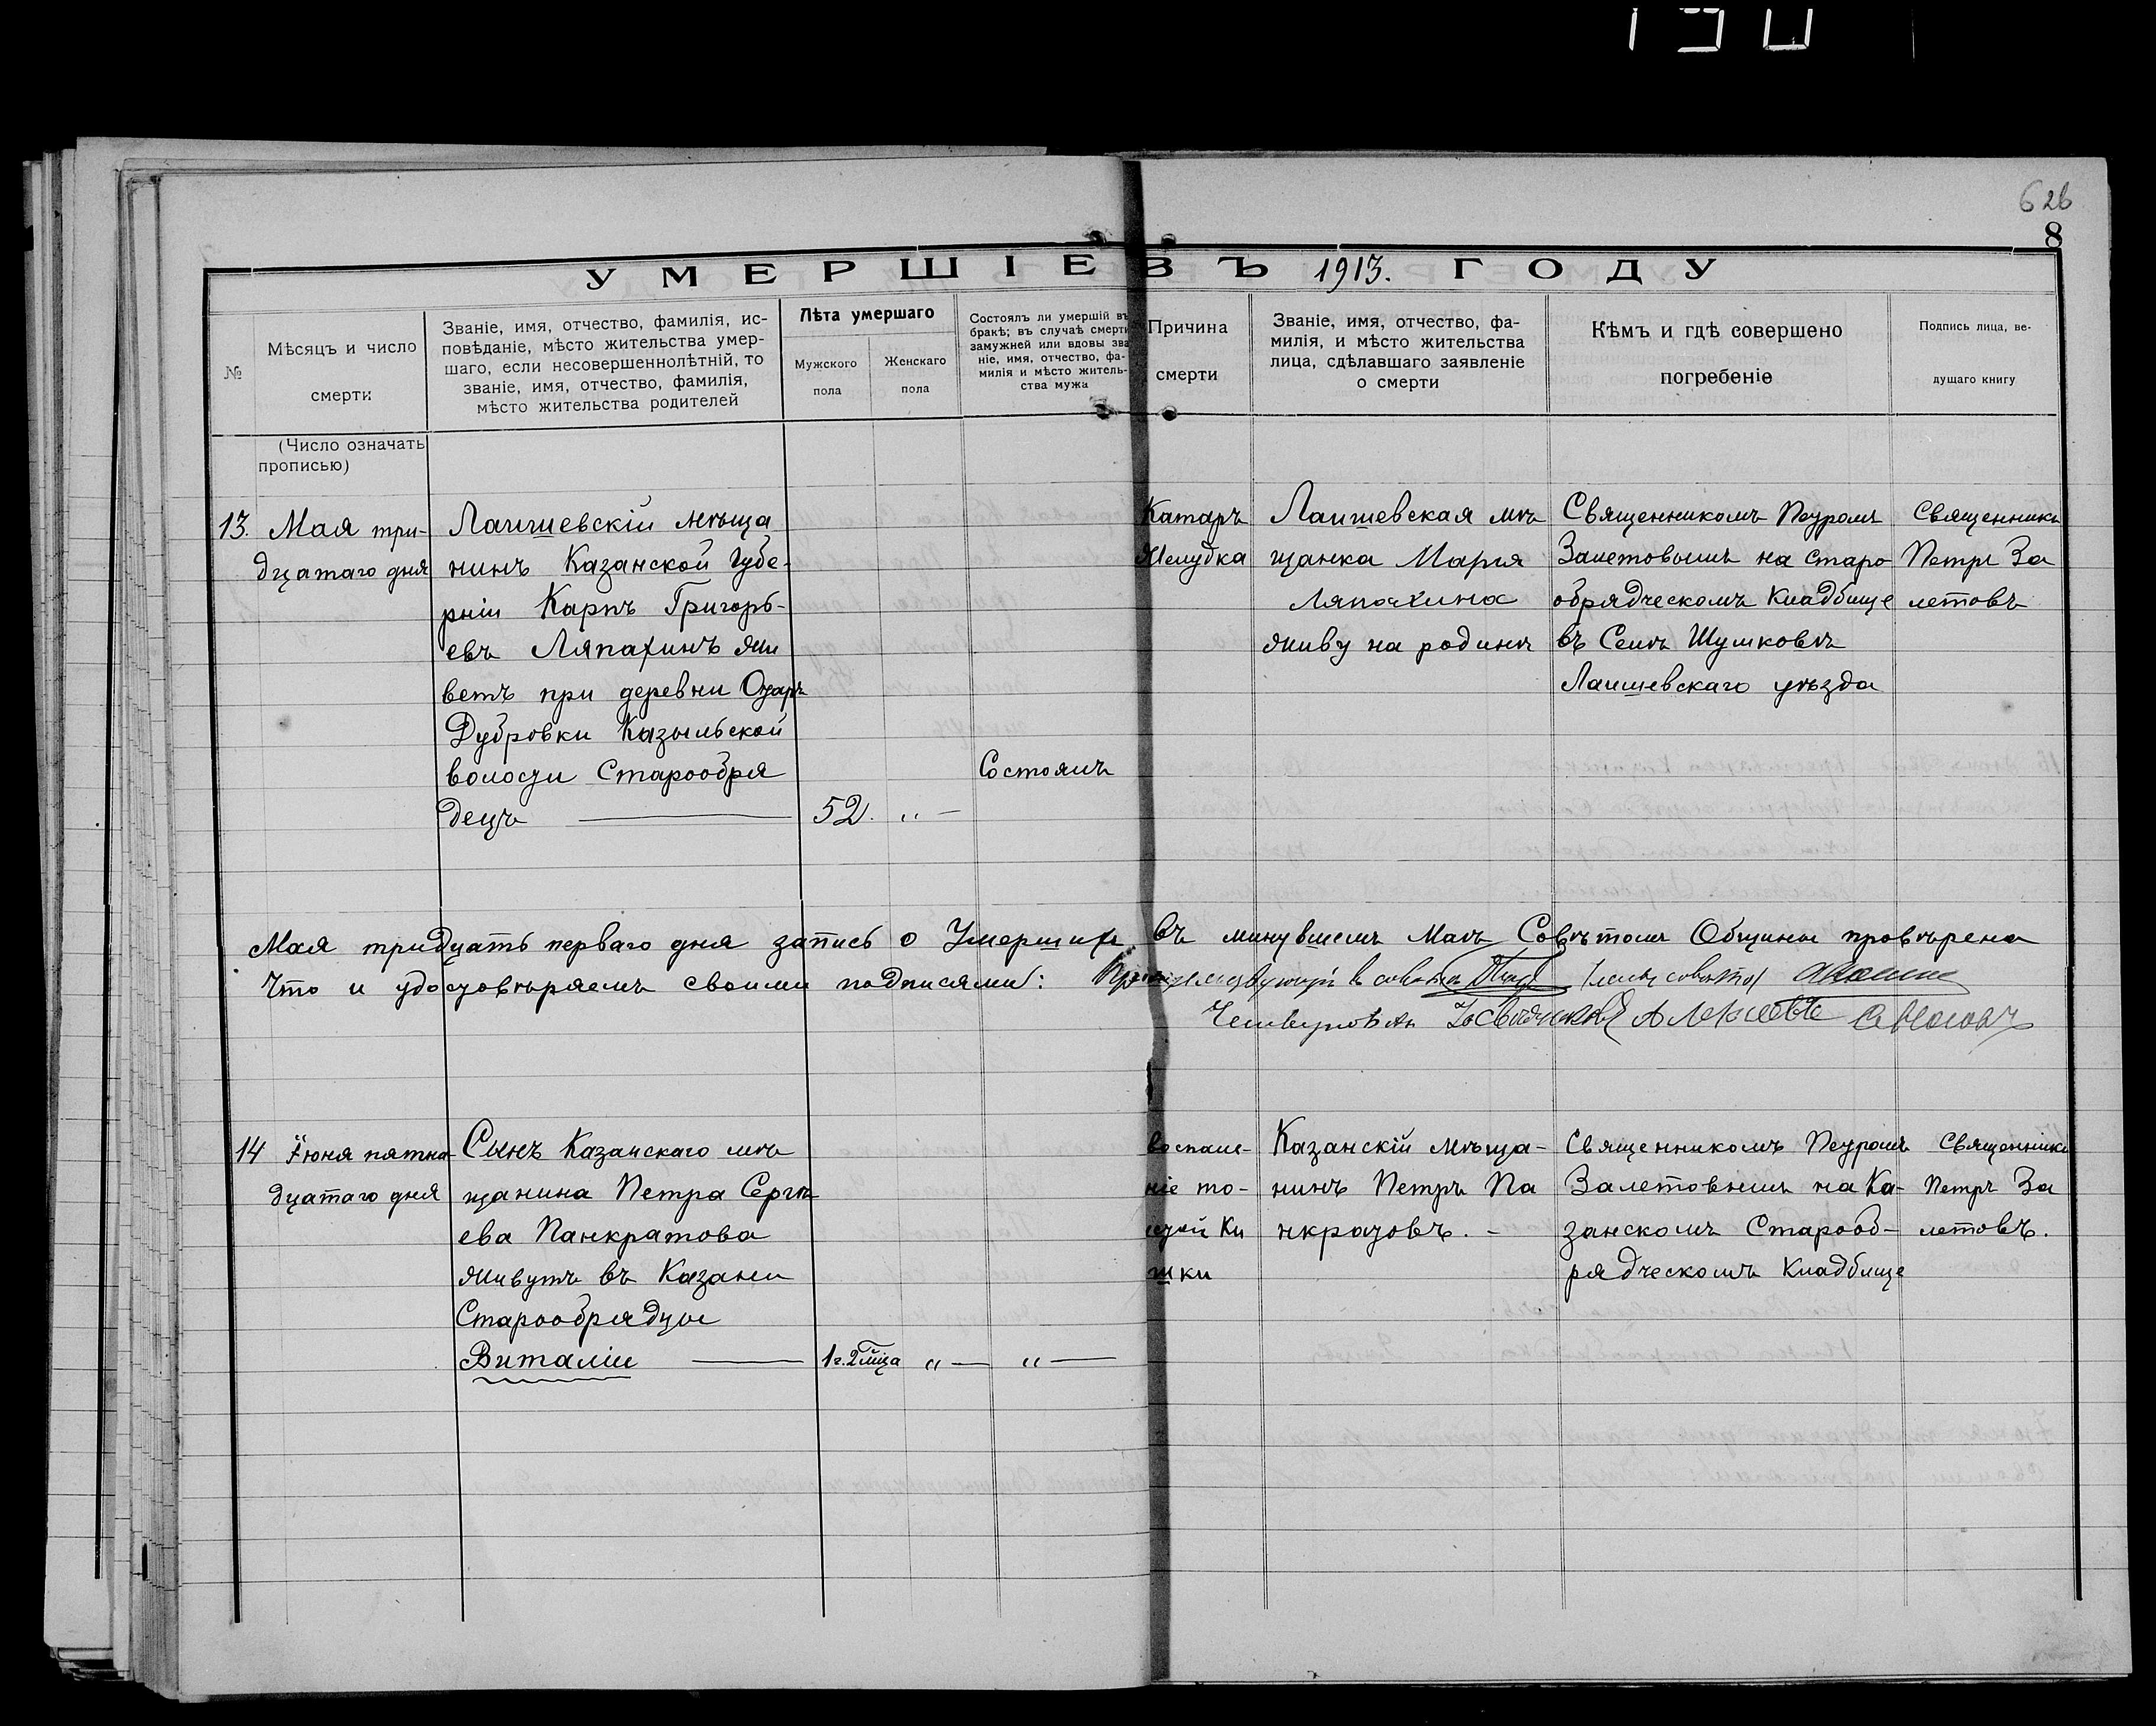 190
626
8
УМЕРШІЕ ВЪ 1913. ГОДУ
№
Мѣсяцъ и число
смерти
(Число означать
прописью)
Званіе, имя, отчество, фамилія, ис-
повѣданіе, мѣсто жительства умер-
шаго, если несовершеннолѣтній, то
званіе, имя, отчество, фамилія,
мѣсто жительства родителей
Лѣта умершаго
Мужского
пола
Женскаго
пола
Состоялъ ли умершій въ
бракѣ; въ случаѣ смерти
замужней или вдовы зва
ніе, имя, отчество, фа-
милія и мѣсто житель-
ства мужа
Причина
смерти
Званіе, имя, отчество, фа-
милія, и мѣсто жительства
лица, сдѣлавшаго заявленіе
о смерти
Кѣмъ и гдѣ совершено
погребеніе
Подпись лица, ве-
дущаго книгу
13.
Мая три-
дцатаго дня
Лаишевскій мѣща
нинъ Казанской Губе-
рніи Карпъ Григорь-
евъ Ляпахинъ жи
ветъ при деревни
Дубровки Казыльской
волости Старообря
децъ
52. „ —
Состоялъ
Катаръ
Желудка
Лаишевская мѣ
щанка Марія
Ляпахина
живу на родинѣ
Священникомъ Петромъ
Залетовымъ на старо
обрядческомъ Кладбище
въ Селѣ Шумковѣ
Лаишевскаго уѣзда
Священникъ
Петръ За
летовъ
Мая тридцать перваго дня запись о Умершихъ въ минувшемъ Маѣ Совѣтомъ Общины провѣрена
Что и удостовѣряемъ своими подписями:
14
Іюня пятна
дцатаго дня
Сынъ Казанскаго мѣ
щанина Петра Сергѣ
ева Панкратова
живутъ въ Казани
Старообрядцы
Виталій
1 г. 2 мца „ — „ —
воспале-
ніе то-
лстой Ки
шки
Казанскій мѣща-
нинъ Петръ Па
нкратовъ. -
Священникомъ Петромъ
Залетовымъ на Ка-
занскомъ Старооб-
рядческомъ Кладбище
Священникъ
Петръ За
летовъ.